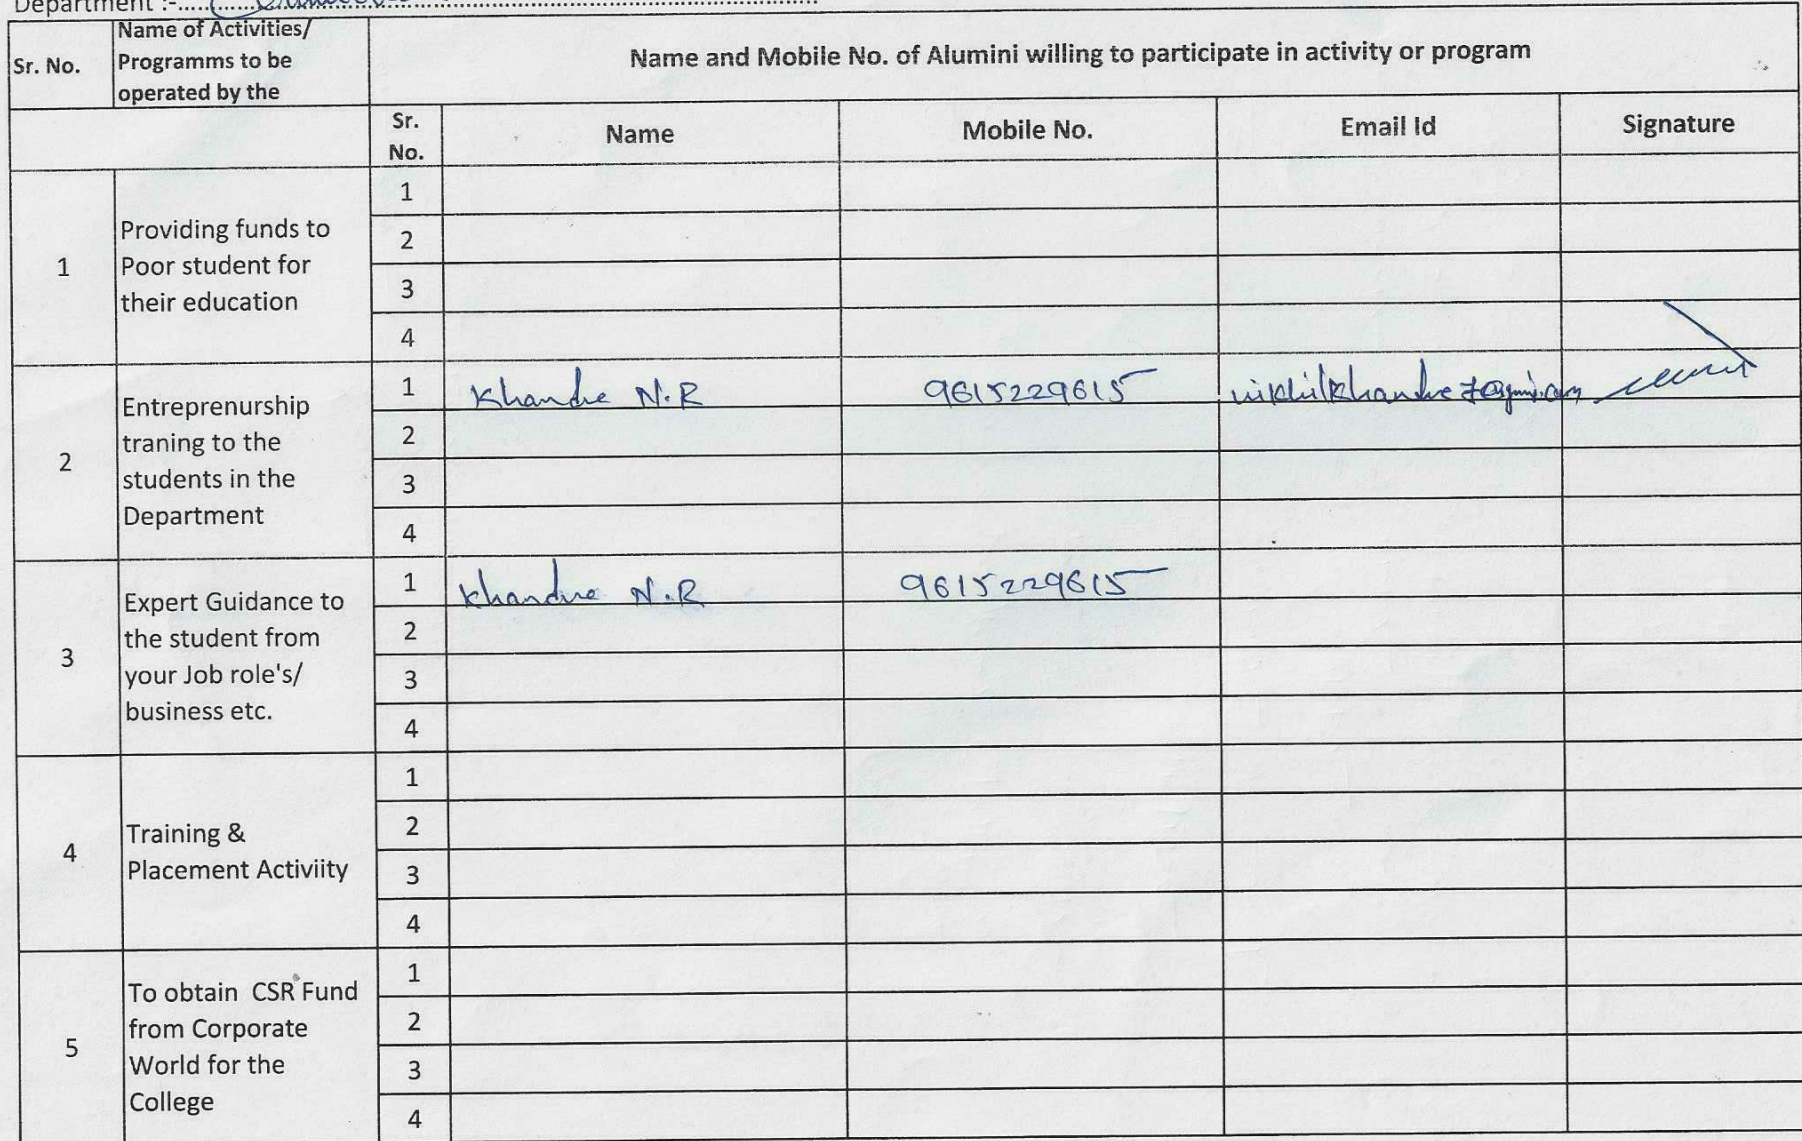 Department :-
Sr. No.
Name of Activities/
Programms to be
operated by the
Name and Mobile No. of Alumini willing to participate in activity or program
Sr.
No.
Name
Mobile No.
Email Id
Signature
1
Providing funds to
Poor student for
their education
1
2
3
4
2
Entreprenurship
traning to the
students in the
Department
1 Khandre N.R 9615229615
2
3
4
3
Expert Guidance to
the student from
your Job role's/
business etc.
1 Khandre N.R 9615229615
2
3
4
4
Training &
Placement Activiity
1
2
3
4
5
To obtain CSR Fund
from Corporate
World for the
College
1
2
3
4